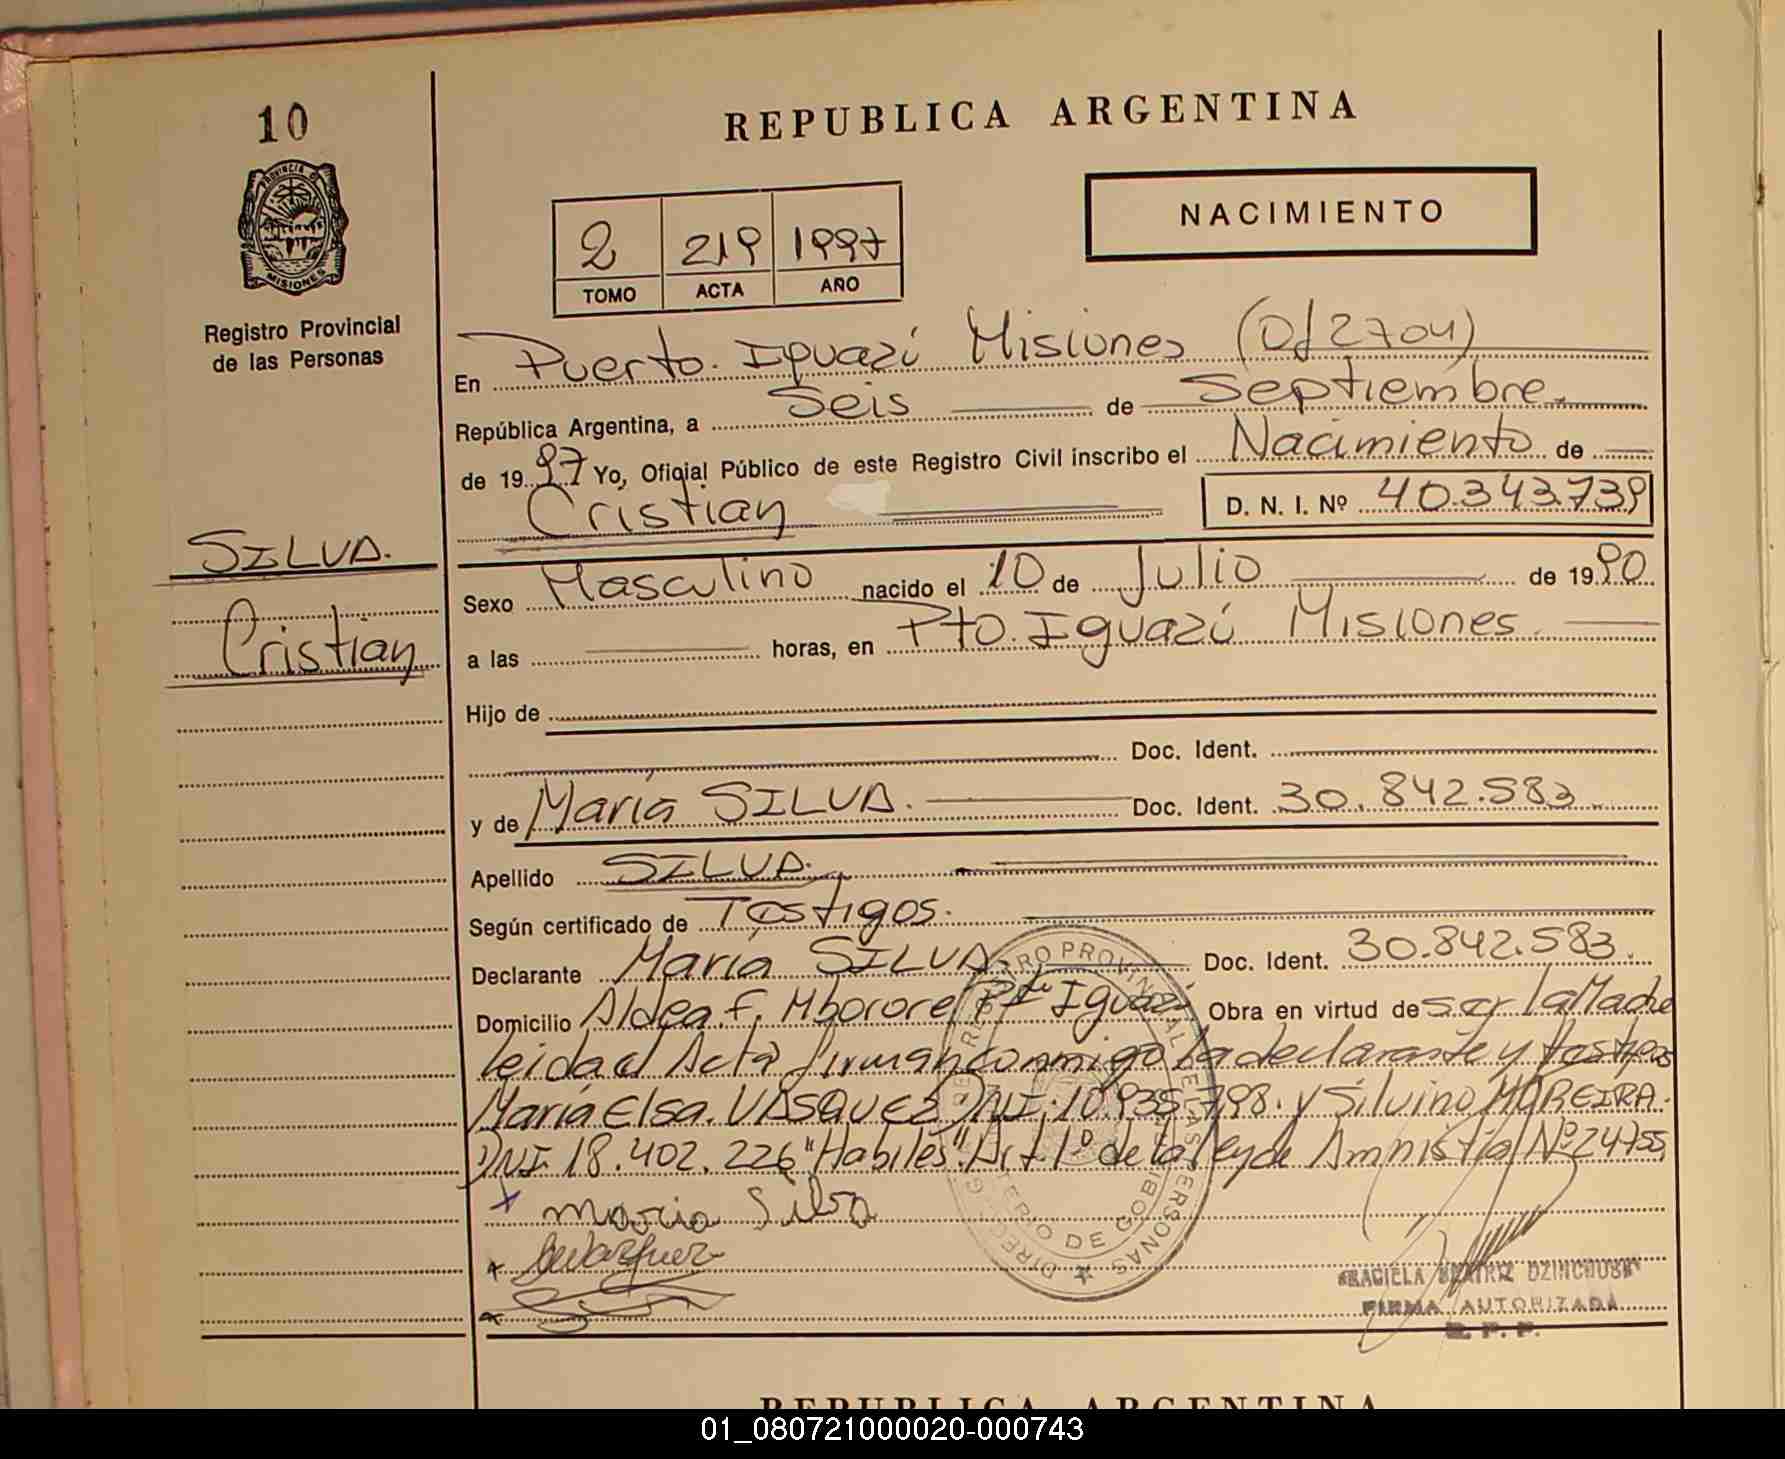 10
REPUBLICA ARGENTINA
PROVINCIA DE
MISIONES
Registro Provincial
de las Personas
NACIMIENTO
2 219 1997
TOMO ACTA AÑO
En Puerto Iguazú Misiones (D/2704)
República Argentina, a Seis de Septiembre
de 1997 Yo, Oficial Público de este Registro Civil inscribo el Nacimiento de
Cristian D. N. I. Nº 40.343.739
SILVA.
Cristian
Sexo Masculino nacido el 10 de Julio de 1990
a las horas, en Pto. Iguazú Misiones.
Hijo de
Doc. Ident.
y de María SILVA. Doc. Ident. 30.842.583
Apellido SILVA.
Según certificado de Testigos.
Declarante María SILVA. Doc. Ident. 30.842.583.
Domicilio Aldea F. Mbororé Pto Iguazú Obra en virtud de ser la Madre
leida el Acta firman conmigo la declarante y testigos
María Elsa. VASQUEZ DNI. 10.935.798. y Silvino MOREIRA.
DNI 18.402.226 "Habiles". Art 1º de la ley de Amnistía Nº 24755
x maria Silva
GRACIELA BEATRIZ
FIRMA AUTORIZADA
R. P. P.
REPUBLICA ARGENTINA
01_080721000020-000743